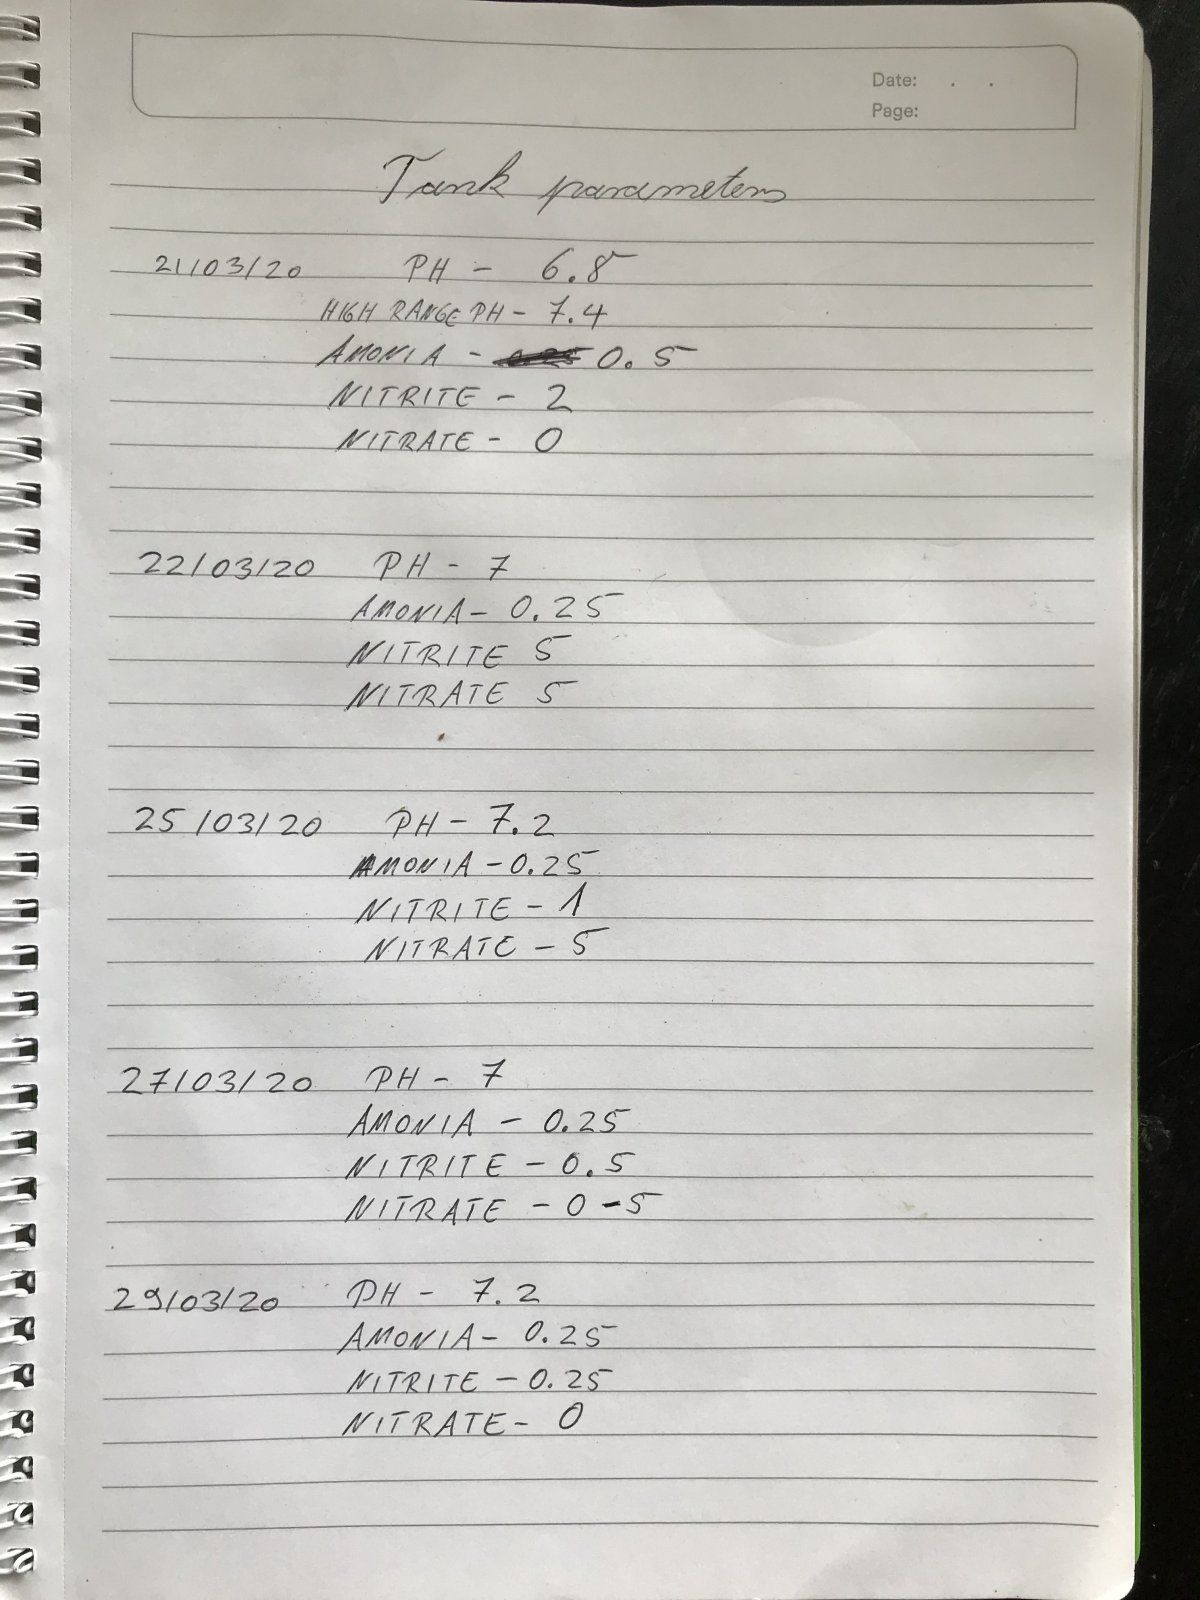 Date: . .
Page:
Tank parameters
21/03/20 PH - 6.8
HIGH RANGE PH - 7.4
AMONIA - 0.5
NITRITE - 2
NITRATE - 0
22/03/20 PH - 7
AMONIA - 0.25
NITRITE 5
NITRATE 5
25/03/20 PH - 7.2
AMONIA - 0.25
NITRITE - 1
NITRATE - 5
27/03/20 PH - 7
AMONIA - 0.25
NITRITE - 0.5
NITRATE - 0-5
29/03/20 PH - 7.2
AMONIA - 0.25
NITRITE - 0.25
NITRATE - 0